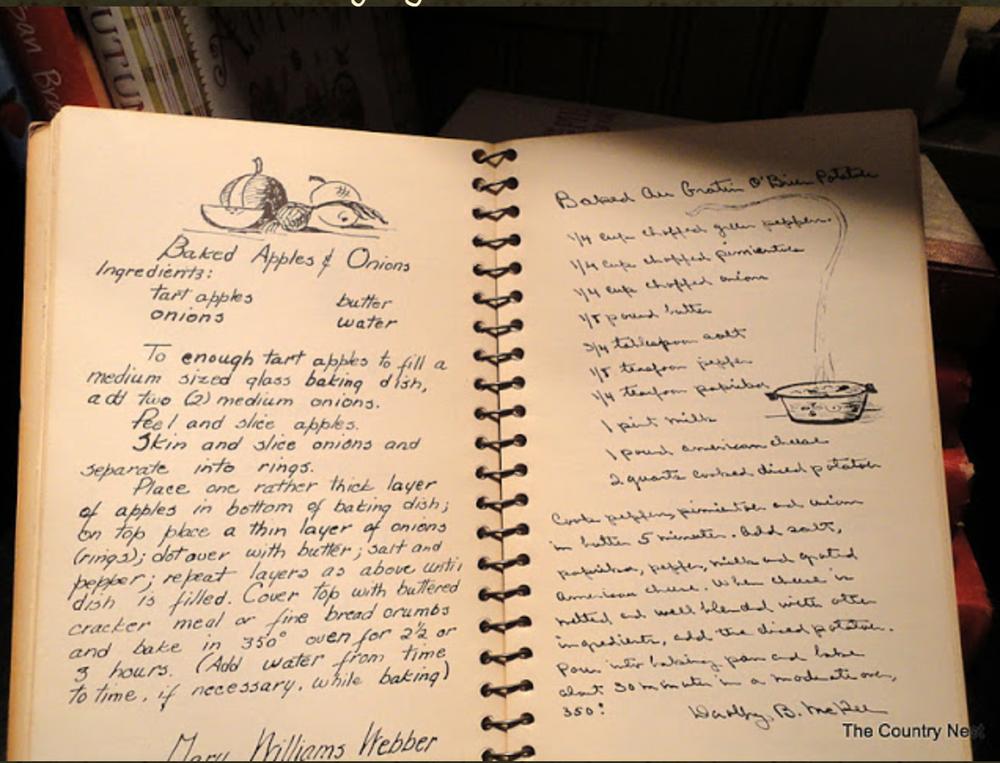 UTUM
Baked Apples & Onions
Ingredients:
tart apples butter
onions water
To enough tart apples to fill a
medium sized glass baking dish,
add two (2) medium onions.
Peel and slice apples.
Skin and slice onions and
separate into rings.
Place one rather thick layer
of apples in bottom of baking dish;
on top place a thin layer of onions
(rings); dot over with butter; salt and
pepper; repeat layers as above until
dish is filled. Cover top with buttered
cracker meal or fine bread crumbs
and bake in 350° oven for 2½ or
3 hours. (Add water from time
to time, if necessary, while baking)
Mary Williams Webber
Baked Au Gratin O'Brien Potatoes
1/4 cup chopped green peppers
1/4 cup chopped pimientos
1/4 cup chopped onions
1/8 pound butter
3/4 tablespoon salt
1/8 teaspoon pepper
1/4 teaspoon paprika
1 pint milk
1 pound american cheese
2 quarts cooked diced potatoes
Cook peppers, pimientos and onions
in butter 5 minutes. Add salt,
paprika, pepper, milk and grated
american cheese. When cheese is
melted and well blended with other
ingredients, add the diced potatoes.
Pour into baking pan and bake
about 30 minutes in a moderate oven,
350°.
Dorothy B. McKee
The Country Nest